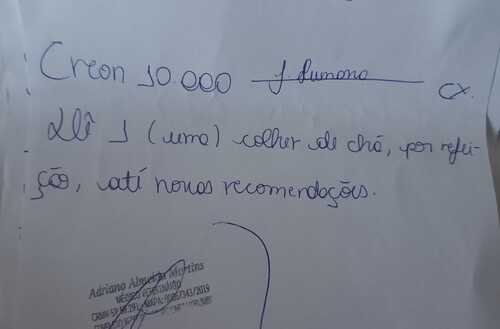 Creon 10.000 f. humana cx.
Dê 1 (uma) colher de chá, por refei-
ção, até novas recomendações.
Adriano Almeida Martins
MÉDICO VETERINÁRIO